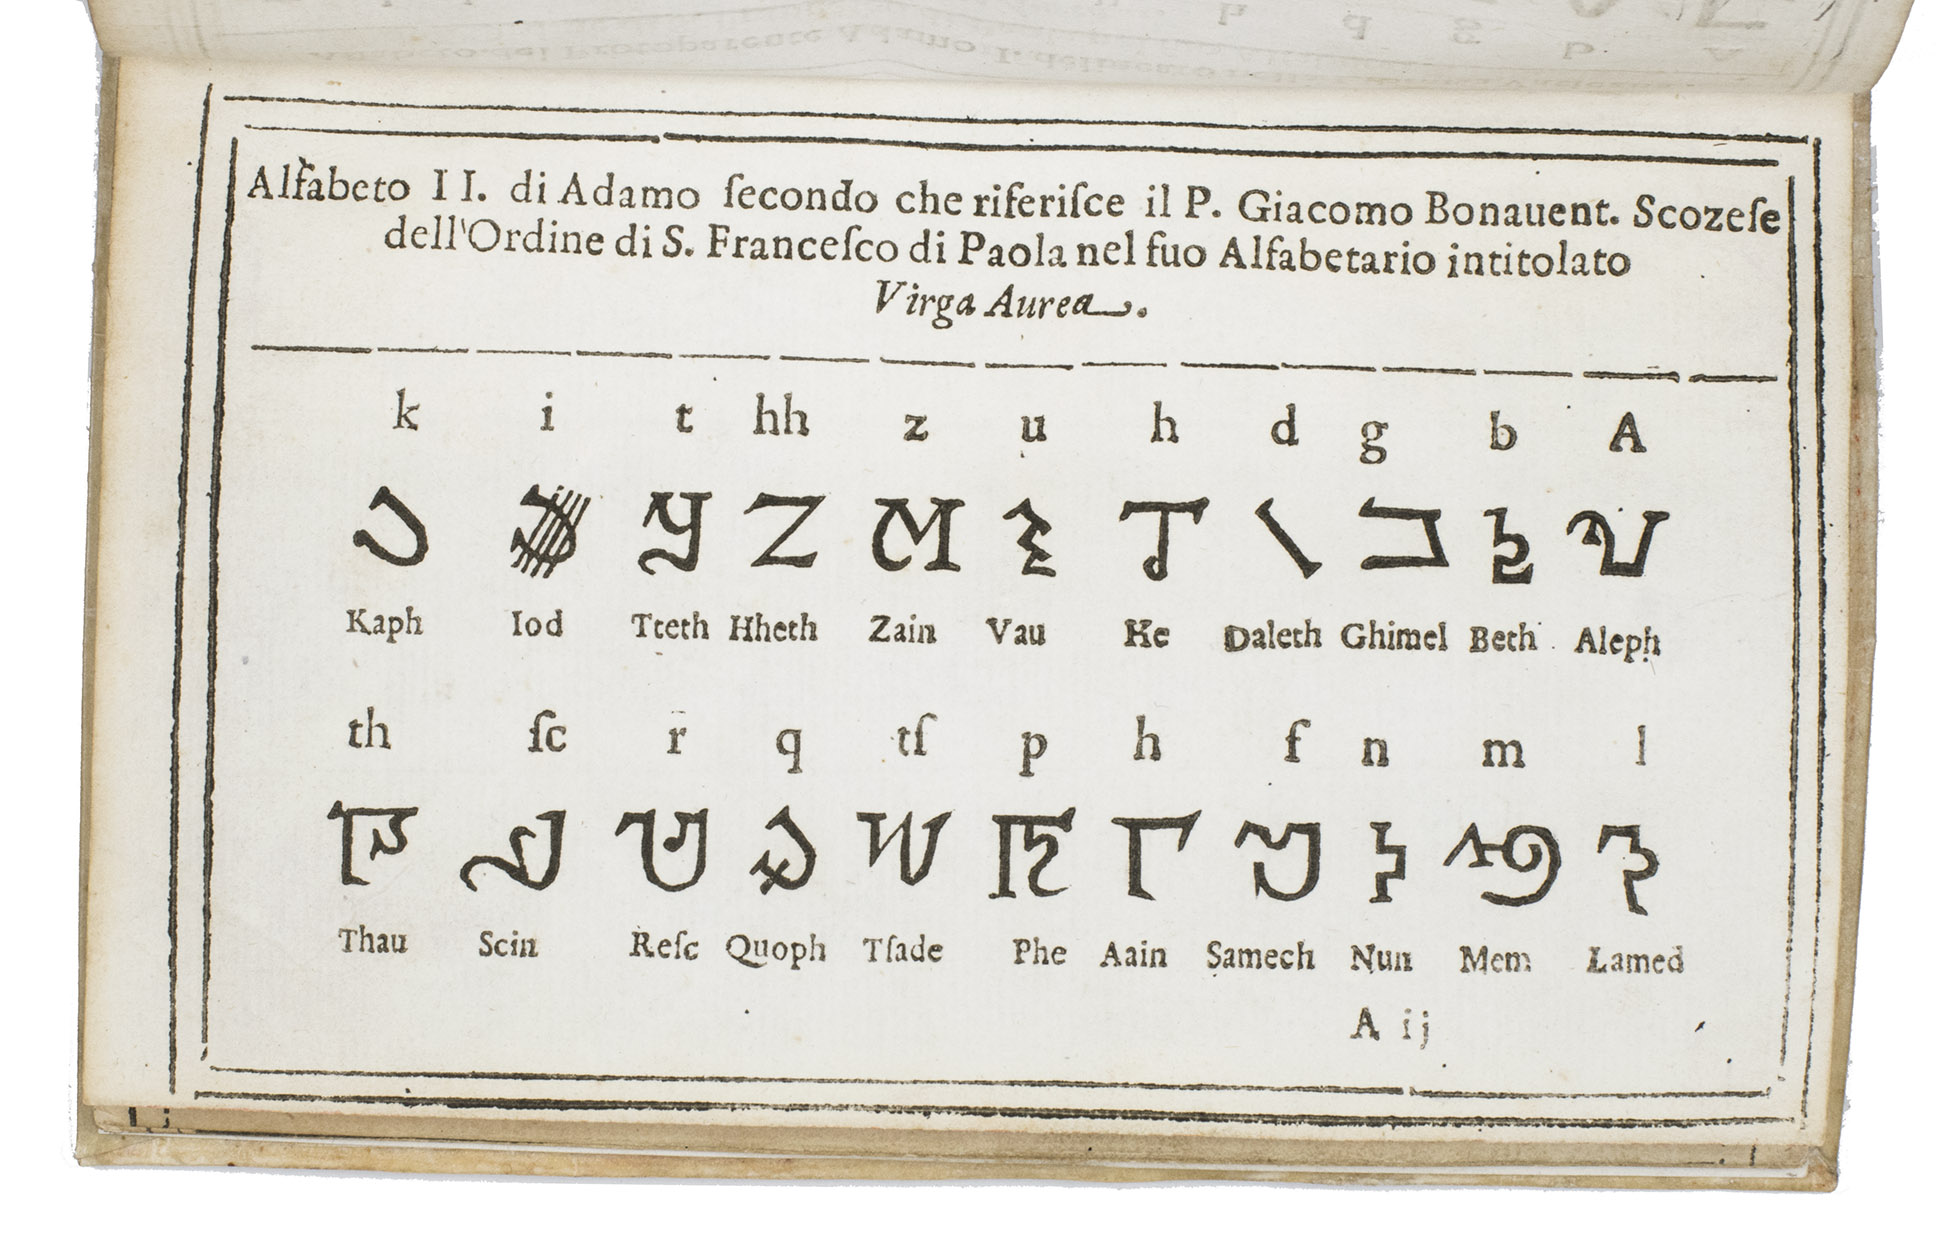 Alfabeto II. di Adamo ſecondo che riferiſce il P. Giacomo Bonauent. Scozeſe
dell'Ordine di S. Franceſco di Paola nel ſuo Alfabetario intitolato
Virga Aurea.
k i t hh z u h d g b A
Kaph Iod Tteth Hheth Zain Vau He Daleth Ghimel Beth Aleph
th ſc r q tſ p h ſ n m l
Thau Scin Reſc Quoph Tſade Phe Aain Samech Nun Mem Lamed
A ij